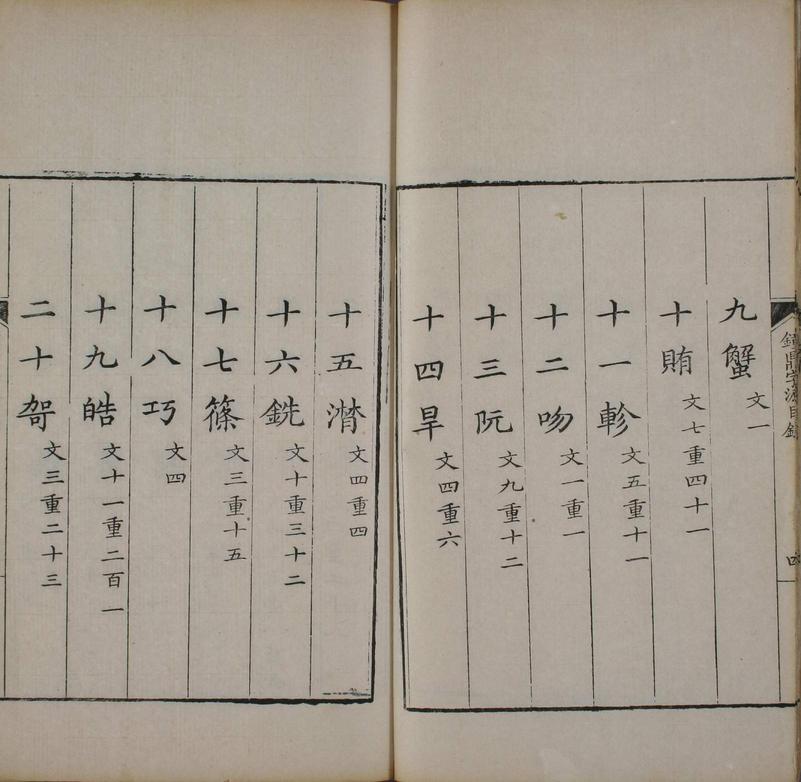 鐘鼎字源目錄
四
九蟹 文一
十賄 文七重四十一
十一軫 文五重十一
十二吻 文一重一
十三阮 文九重十二
十四旱 文四重六
十五潸 文四重四
十六銑 文十重三十二
十七篠 文三重十五
十八巧 文四
十九皓 文十一重二百一
二十哿 文三重二十三